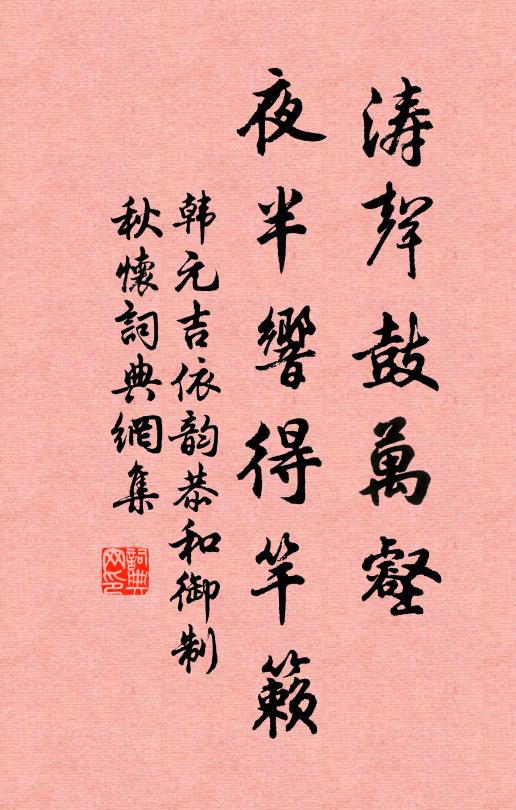 涛聲鼓萬壑
夜半響得竽籟
韩元吉依韵恭和御制
秋懷詞典網集
詞典网印